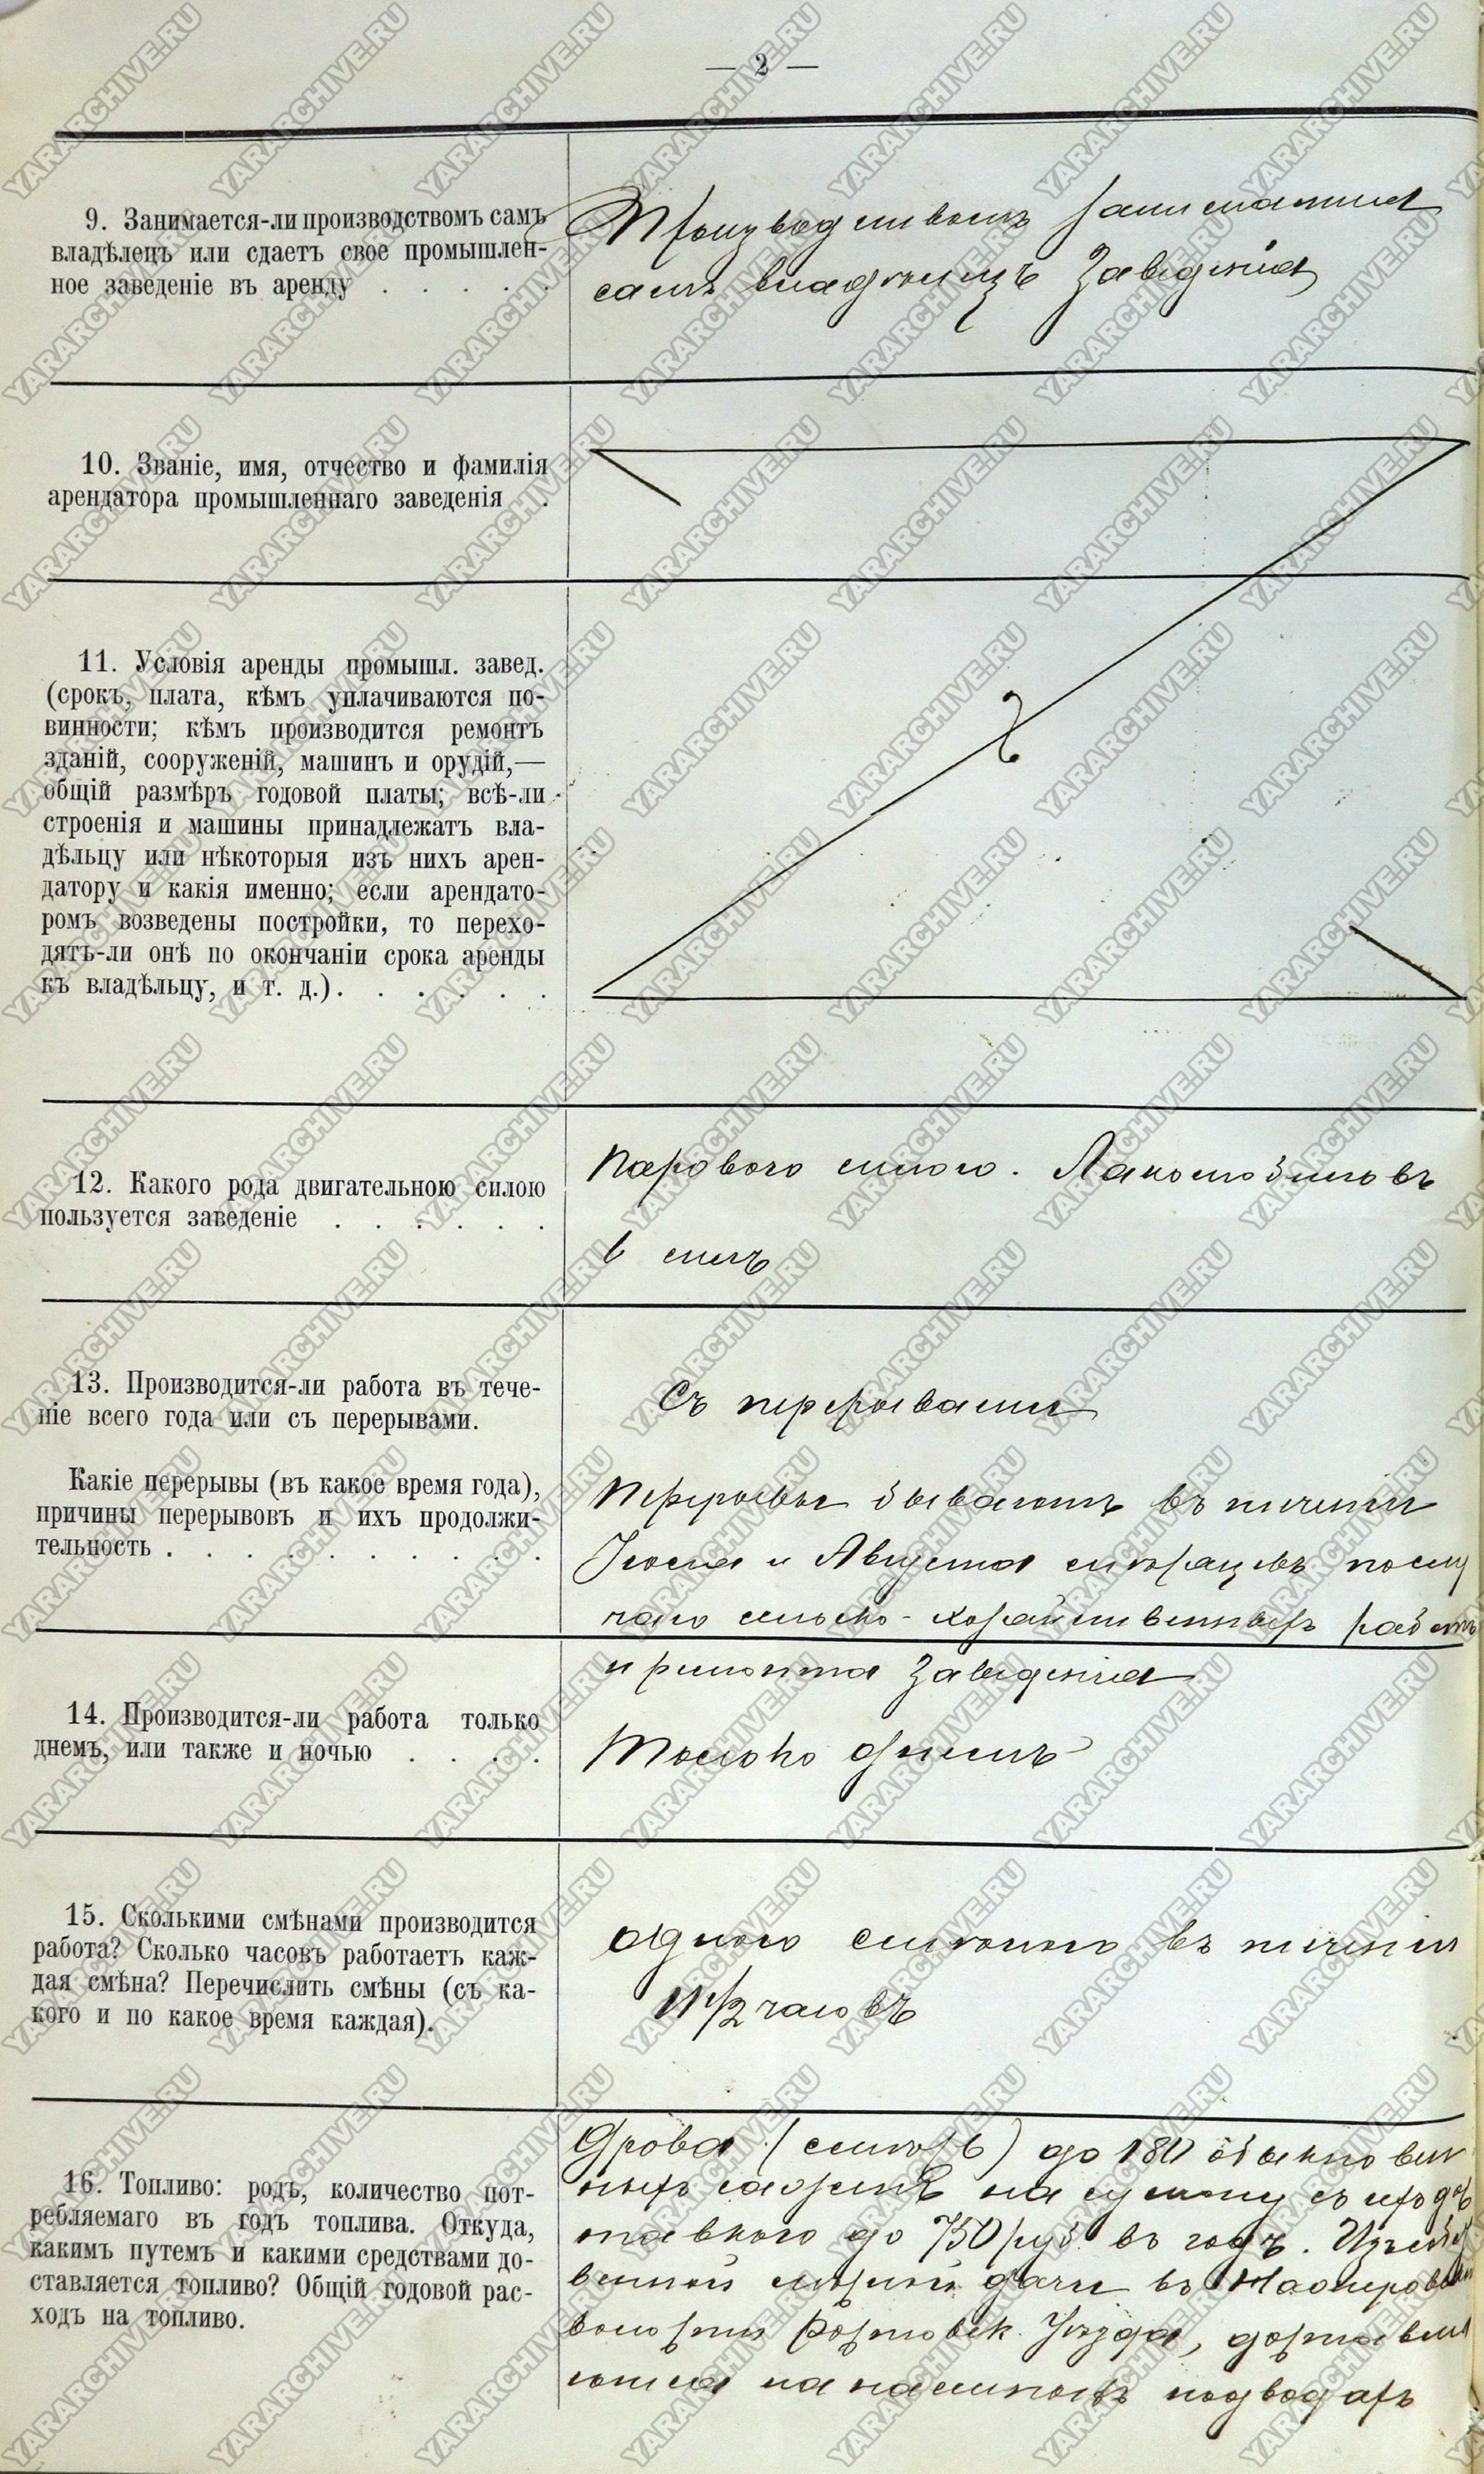 — 2 —
9. Занимается-ли производствомъ самъ
владѣлецъ или сдаетъ свое промышлен-
ное заведеніе въ аренду . . . . .
Производствомъ занимается
самъ владѣлецъ заведенія
10. Званіе, имя, отчество и фамилія
арендатора промышленнаго заведенія .
11. Условія аренды промышл. завед.
(срокъ, плата, кѣмъ уплачиваются по-
винности; кѣмъ производится ремонтъ
зданій, сооруженій, машинъ и орудій,—
общій размѣръ годовой платы; всѣ-ли
строенія и машины принадлежатъ вла-
дѣльцу или нѣкоторыя изъ нихъ арен-
датору и какія именно; если арендато-
ромъ возведены постройки, то перехо-
дятъ-ли онѣ по окончаніи срока аренды
къ владѣльцу, и т. д.). . . . . .
12. Какого рода двигательною силою
пользуется заведеніе . . . . . .
Паровою силою. Лакомобиловъ
силъ
13. Производится-ли работа въ тече-
ніе всего года или съ перерывами.
Съ перерывами
Какіе перерывы (въ какое время года),
причины перерывовъ и ихъ продолжи-
тельность . . . . . . . . . .
Перерывы бываютъ въ теченіи
Іюля и Августа месяцевъ по слу
чаю сельско-хозяйственныхъ работъ
и ремонта заведенія
14. Производится-ли работа только
днемъ, или также и ночью . . . .
Только днемъ
15. Сколькими смѣнами производится
работа? Сколько часовъ работаетъ каж-
дая смѣна? Перечислить смѣны (съ ка-
кого и по какое время каждая).
Одною смѣною въ теченіи
11 1/2 часовъ
16. Топливо: родъ, количество пот-
ребляемаго въ годъ топлива. Откуда,
какимъ путемъ и какими средствами до-
ставляется топливо? Общій годовой рас-
ходъ на топливо.
Дрова (смѣсь) до 180 обыкновен
ныхъ саженъ на сумму съ ихъ дос
тавкою до 750 руб. въ годъ. Изъ
венной лесной дачи въ
волости Ростовск. Уѣзда, доставля
ются на наемныхъ подводахъ
YARARCHIVE.RU